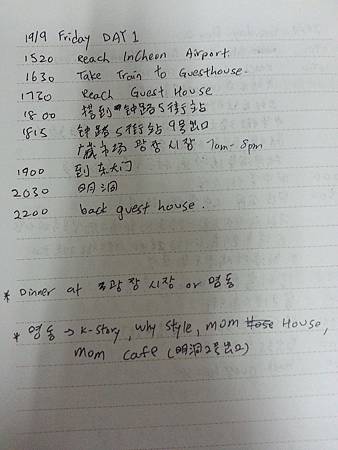 19/9 Friday DAY 1
1520 Reach InCheon Airport.
1630 Take Train to Guesthouse.
1730 Reach Guest House
1800 搭到钟路5街站
1815 钟路5街站 9号出口
广藏市场 광장시장 7am-8pm
1900 到东大门
2030 明洞
2200 back guest house.
* Dinner at 광장시장 or 명동
* 명동 → K-story, why style, mom House,
mom cafe (明洞2号出口)